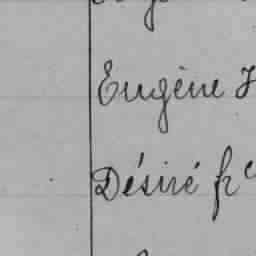 Eugène
Désiré fr